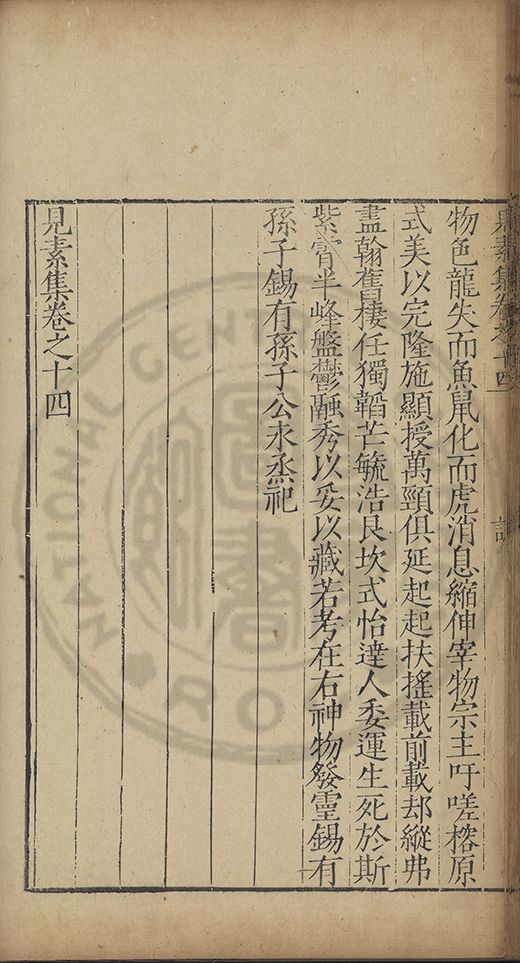 見素集卷之十四
物色龍失而魚鼠化而虎消息縮伸宰物宗主吁嗟榕原
式美以完隆施顯授萬頸俱延起起扶搖載前載却縱弗
盡翰舊棲任獨韜芒毓浩艮坎式怡達人委運生死於斯
紫霄半峰盤鬱融秀以妥以藏若考在右神物發靈錫有
孫子錫有孫子公永烝祀
見素集卷之十四